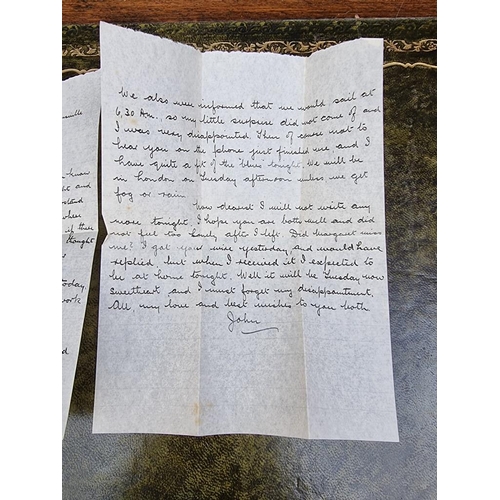 ville
know
ght and
stand
when
if there
thought
today.
work
We also were informed that we would sail at
6.30 A.m., so my little suprise did not come of and
I was very disappointed. Then of course not to
hear you on the phone just finished me and I
have quite a fit of the blues tonight. We will be
in London on Tuesday afternoon unless we get
fog or rain.
Now dearest I will not write any
more tonight. I hope you are both well and did
not feel too lonely after I left. Did Margaret miss
me? I got your wire yesterday and would have
replied, but when I received it I expected to
be at home tonight. Well it will be Tuesday now
sweetheart and I must forget my disappointment.
All my love and best wishes to you both
John